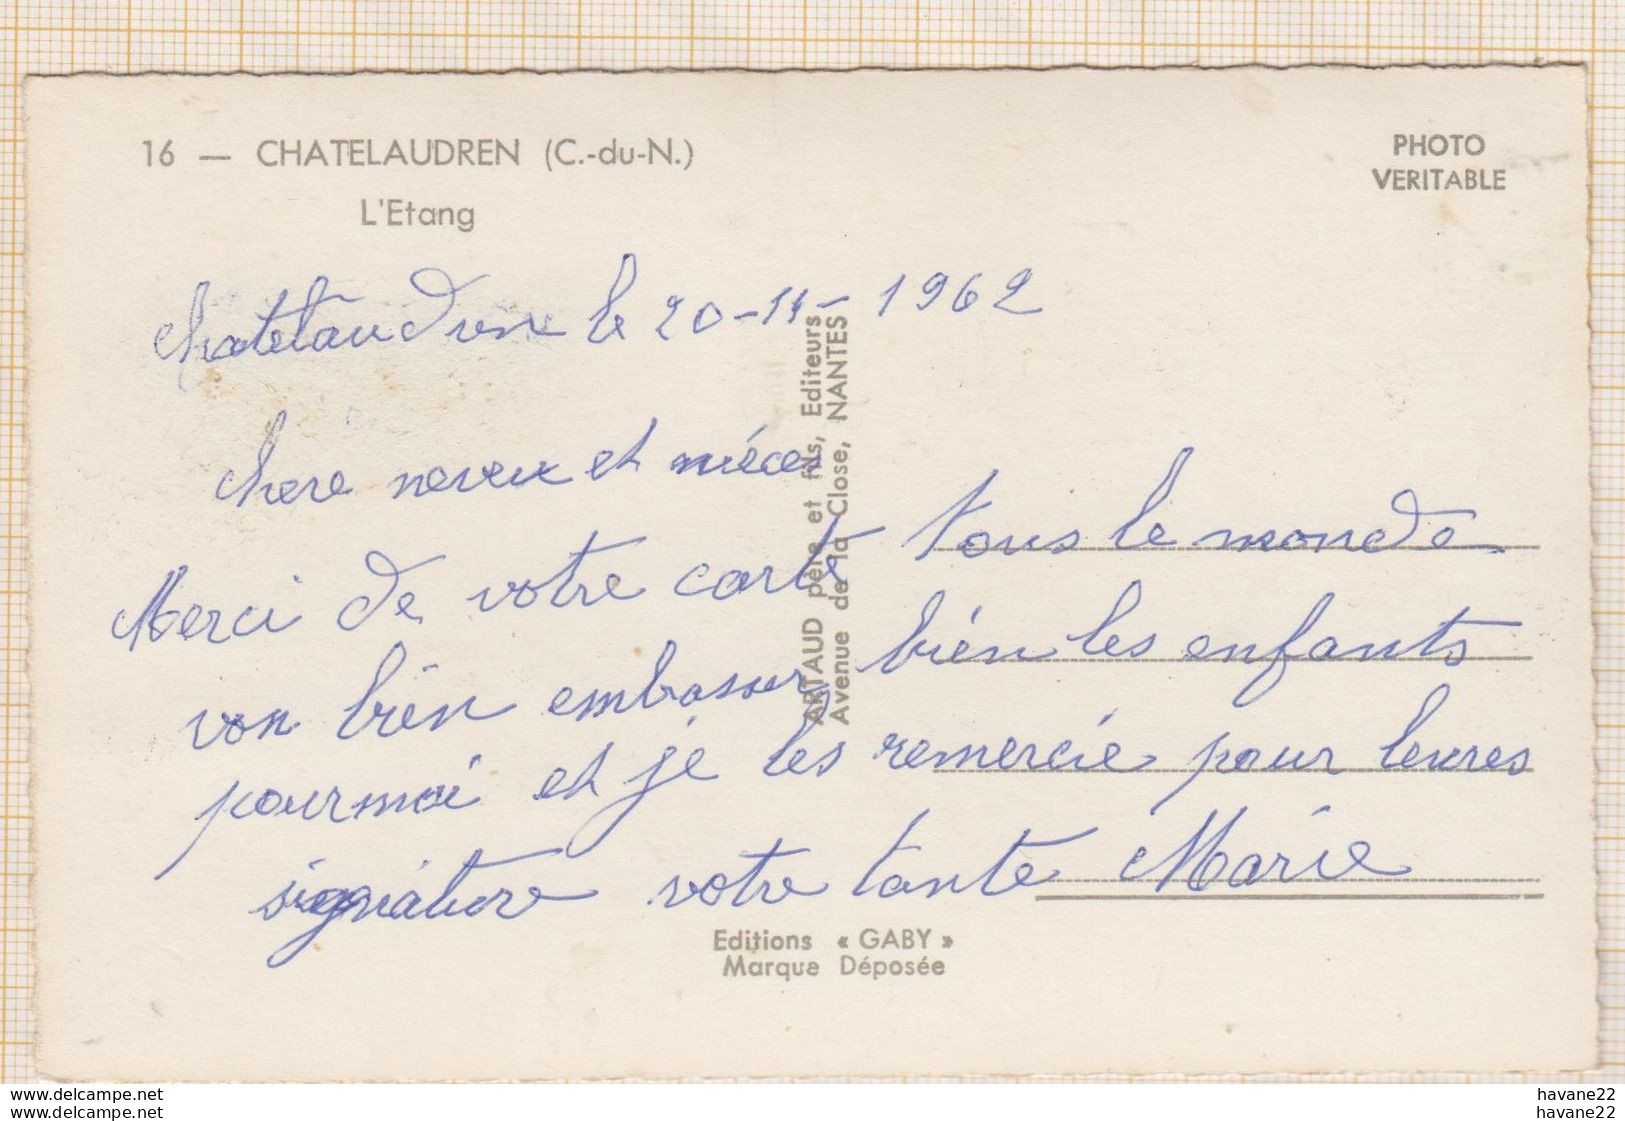 16 — CHATELAUDREN (C.-du-N.)
L'Etang
PHOTO
VERITABLE
Chatelaudren le 20-11-1962
chere neveu et niéces
Merci de votre carte tous le monde
von bien embasser bien les enfants
pour moi et je les remercie pour leures
signiature votre tante Marie
ARTAUD père et fils, Editeurs
Avenue de la Close, NANTES
Editions « GABY »
Marque Déposée
delcampe.net
delcampe.net
havane22
havane22